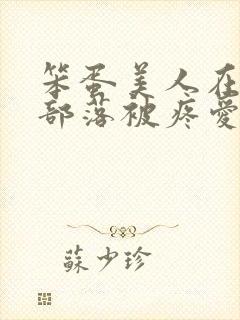 笨蛋美人在
部落被疼愛
蘇少珍